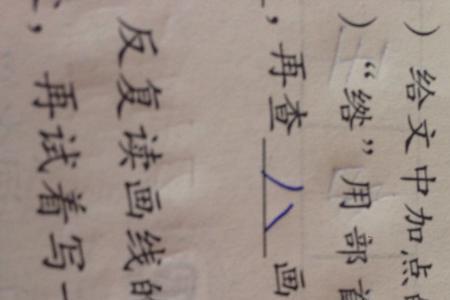 ）给文中加点
）“绺”用部首
，再查八画
反复读画线的
，再试着写一